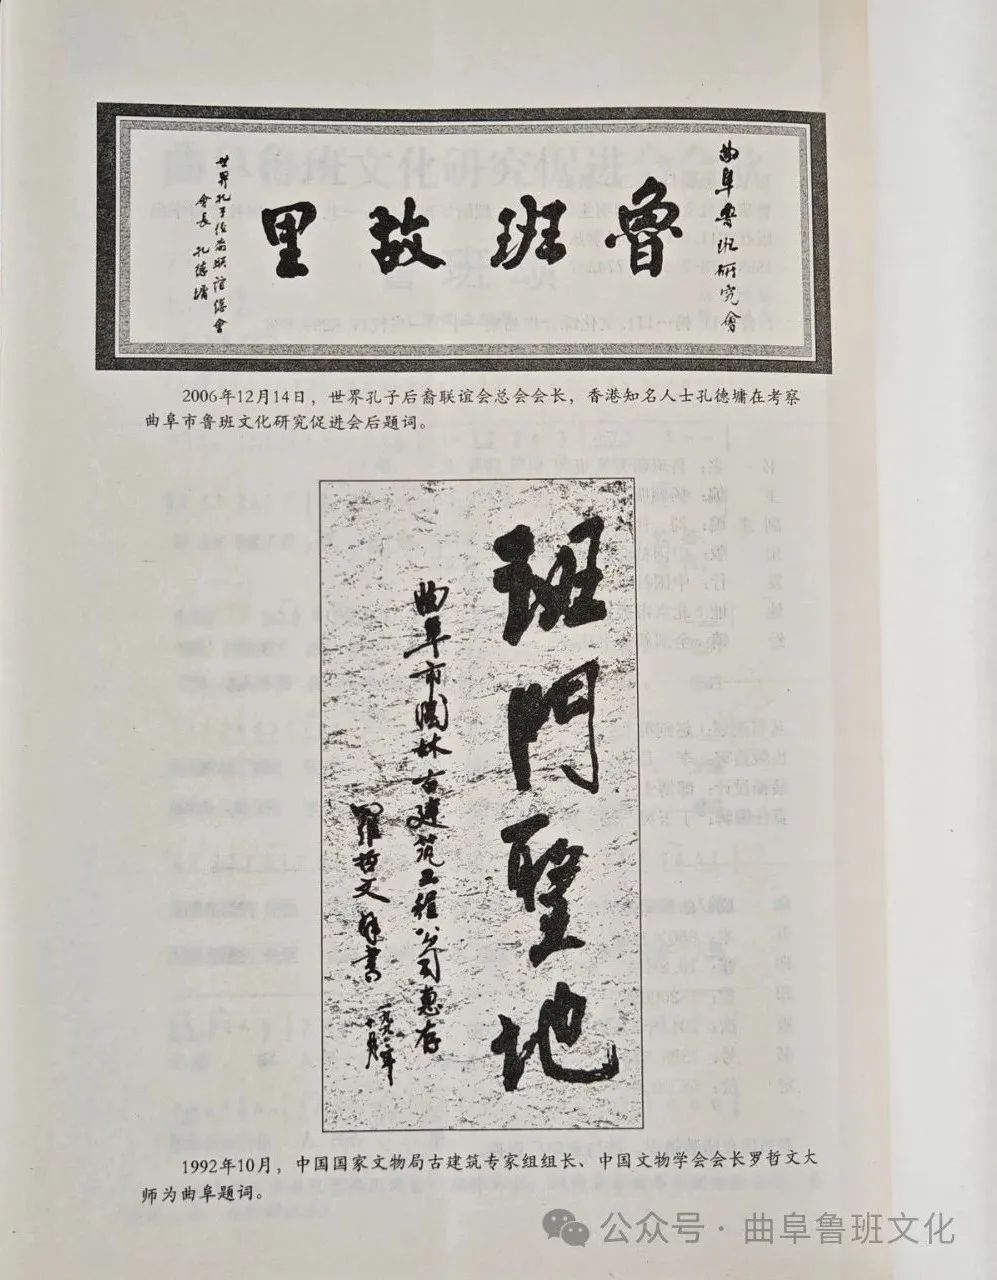 曲阜鲁班研究會
魯班故里
世界孔子后裔联谊总會
会長 孔德墉
2006年12月14日，世界孔子后裔联谊会总会会长，香港知名人士孔德墉在考察
曲阜市鲁班文化研究促进会后题词。
班門聖地
曲阜市園林古建筑工程公司惠存
羅哲文 書
一九九二年
十月
1992年10月，中国国家文物局古建筑专家组组长、中国文物学会会长罗哲文大
师为曲阜题词。
公众号·曲阜鲁班文化